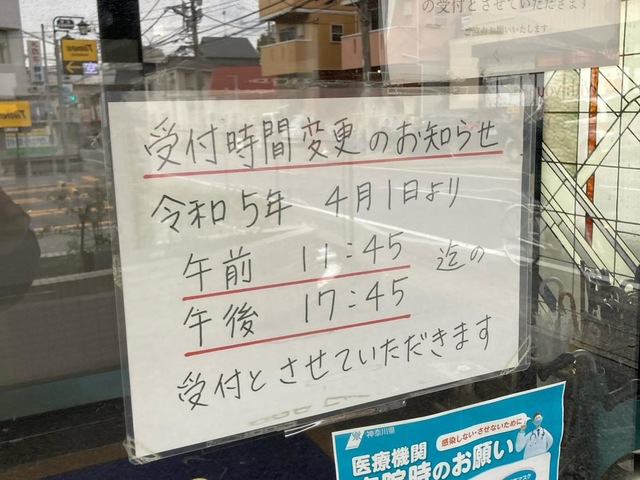 の受付とさせていただきます
受付時間変更のお知らせ
令和5年 4月1日より
午前 11:45 迄の
午後 17:45
受付とさせていただきます
神奈川県
感染しない・させないために
医療機関
院時のお願い